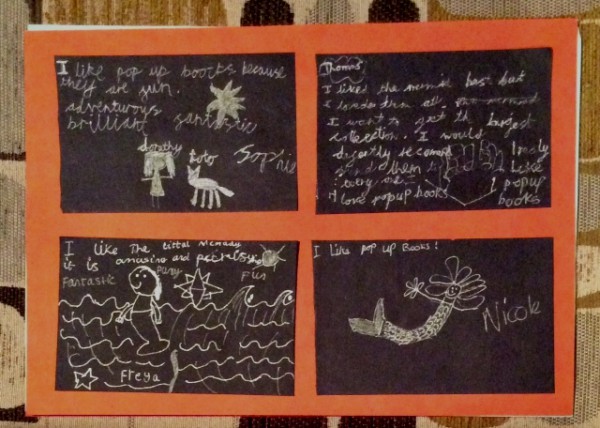 I like pop up books because
they are fun.
adventurous
brilliant fantastic
dorothy
toto
Sophie
Thomas
I liked the mermid best but
I loved them all
I want to get the largest
collection. I would
recomend
them
I love popup books
I realy
Like
popup
books
I like The littal Mermady
it is amazing and
Fantastic
Fun
Freya
I Like POP UP Books!
Nicole